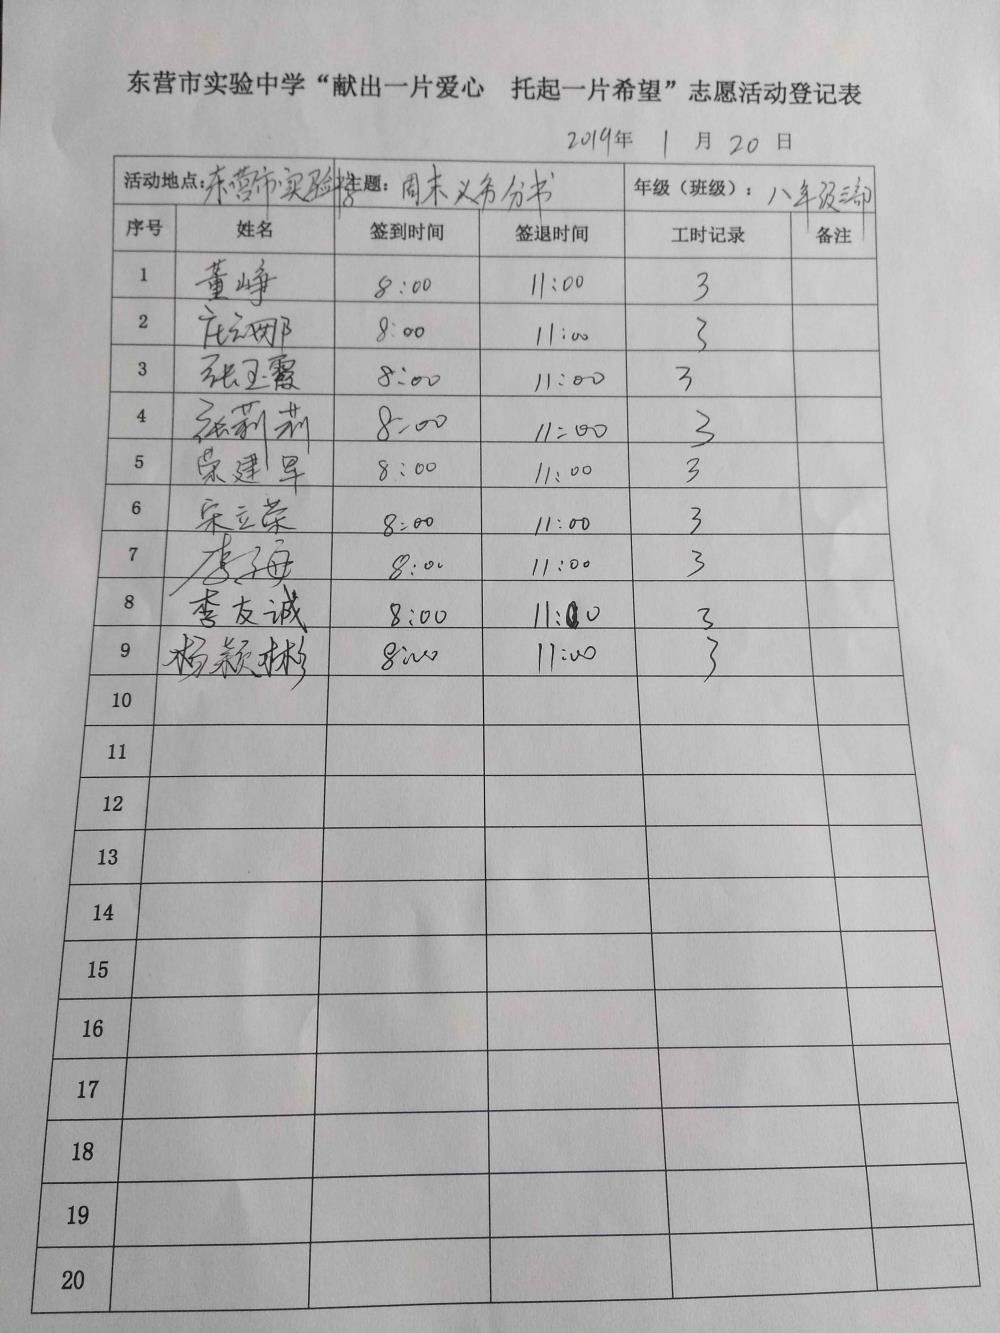 东营市实验中学“献出一片爱心 托起一片希望”志愿活动登记表
2019年 1 月 20 日
活动地点：东营市实验中学 主题：周末义务分书 年级（班级）：八年级三部
序号 姓名 签到时间 签退时间 工时记录 备注
1 董峥 8:00 11:00 3
2 庄云娜 8:00 11:00 3
3 张玉霞 8:00 11:00 3
4 张莉莉 8:00 11:00 3
5 荣建早 8:00 11:00 3
6 宋立荣 8:00 11:00 3
7 李子海 8:00 11:00 3
8 李友诚 8:00 11:00 3
9 杨颖彬 8:00 11:00 3
10
11
12
13
14
15
16
17
18
19
20